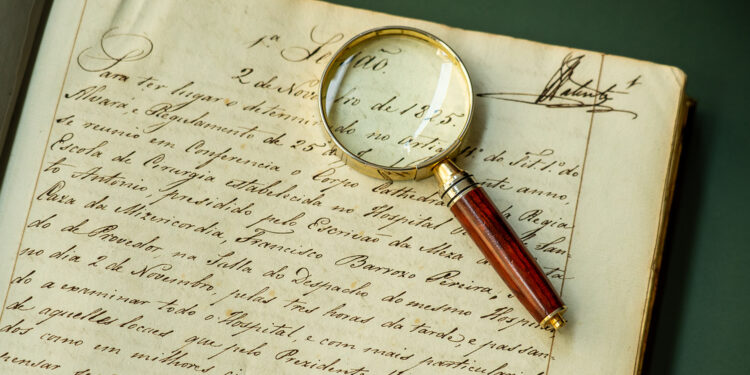 1ª Sessão.
2 de Novembro de 1825
Para ter lugar o determinado no Artigo 1º do Tit. 1º do
Alvará, e Regulamento de 25 de anno,
se reunio em Conferencia o Corpo Cathedra da Regia
Escola de Cirurgia estabelecida no Hospital de San-
to Antonio, presidido pelo Escrivão da Meza da Santa
Caza da Misericordia, Francisco Barrozo Pereira,
do de Provedor na Salla do Despacho do mesmo Hospital
no dia 2 de Novembro, pelas tres horas da tarde, e passan-
do a examinar todo o Hospital, e com mais particulari
de aquelles locaes que pelo Presidente
dos como em milhores
pensar se